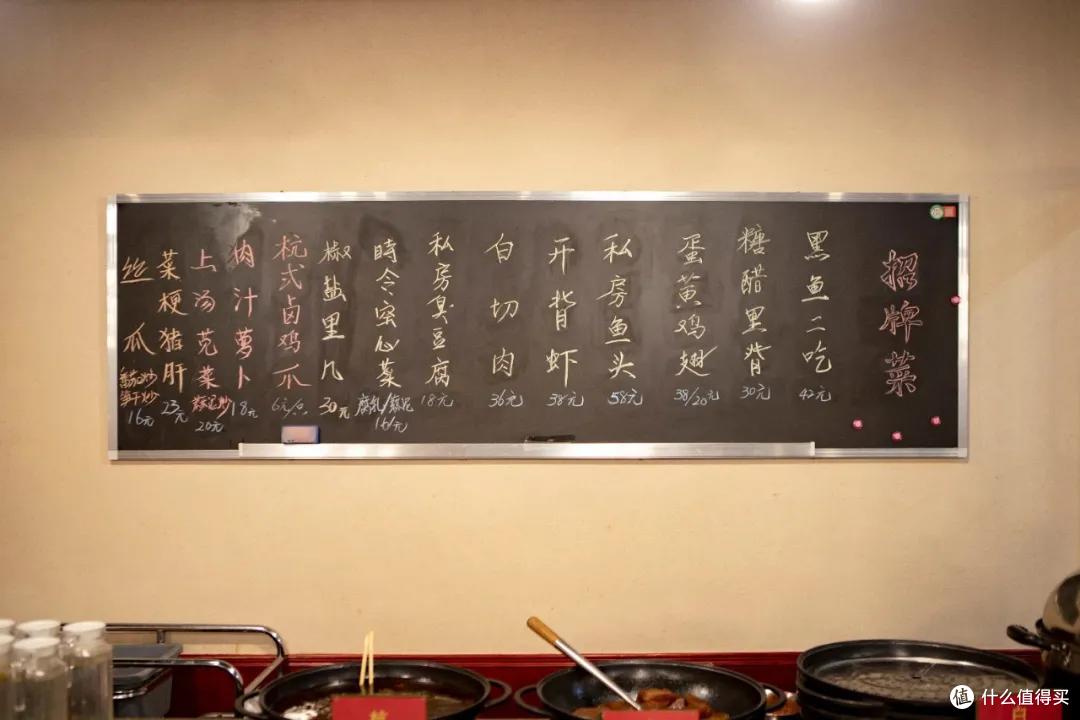 招牌菜
黑鱼二吃
42元
糖醋里背
30元
蛋黄鸡翅
38/20元
私房鱼头
58元
开背虾
38元
白切肉
36元
私房臭豆腐
18元
時令蜜心菜
腐乳/蒜泥
16元
椒盐里几
30元
杭式卤鸡爪
6元/只
肉汁萝卜
18元
上汤苋菜
蒜泥炒
20元
菜梗猪肝
23元
丝瓜
番茄炒
笋干炒
16元
值 什么值得买